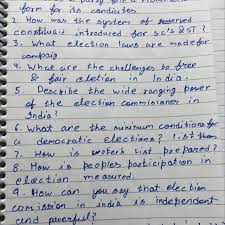 form for its candidates
2. How was the system of reserved
constituency introduced for SC's & ST?
3. What election laws are made for
campaig
4. What are the challenges to free
& fair eletion in India.
5. Describe the wide ranging power
of the election commisioner in
India?
6. What are the minimum conditions for
a democratic elections? list them
7. How is voter's list prepared?
8. How is peoples participation in
election measured.
9. How can you say that election
comission in india is independent
and powerful?